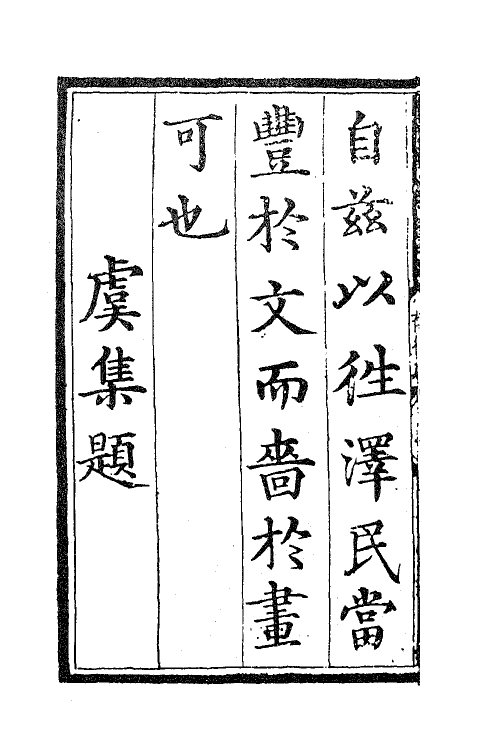 自茲以徃澤民當
豐於文而嗇於畫
可也
虞集題